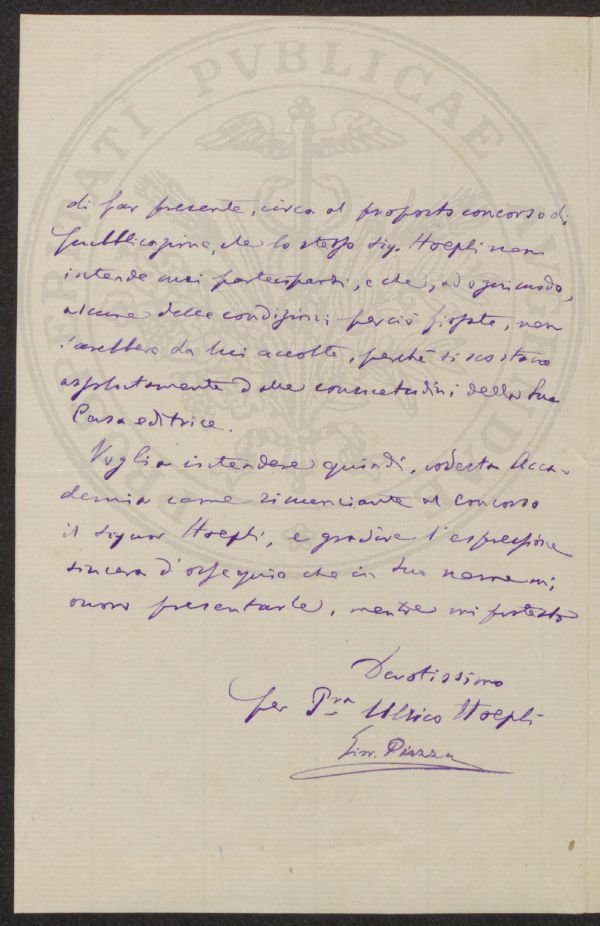 PROSPERITATI PVBLICAE
di far presente, circa al proposto concorso di
pubblicazione, che lo stesso Sig. Hoepli non
intende mai parteciparvi, e che, ad ogni modo,
alcune delle condizioni perciò fissate, non
sarebbero da lui accolte, perché si scostano
assolutamente dalle consuetudini della Sua
Casa editrice.
Voglia intendere quindi, codesta Acca-
demia come rinunciante al concorso
il Signor Hoepli, e gradire l'espressione
sincera d'ossequio che in Suo nome mi
onoro presentarle, mentre mi protesto
Devotissimo
per Pra Ulrico Hoepli
Piazza